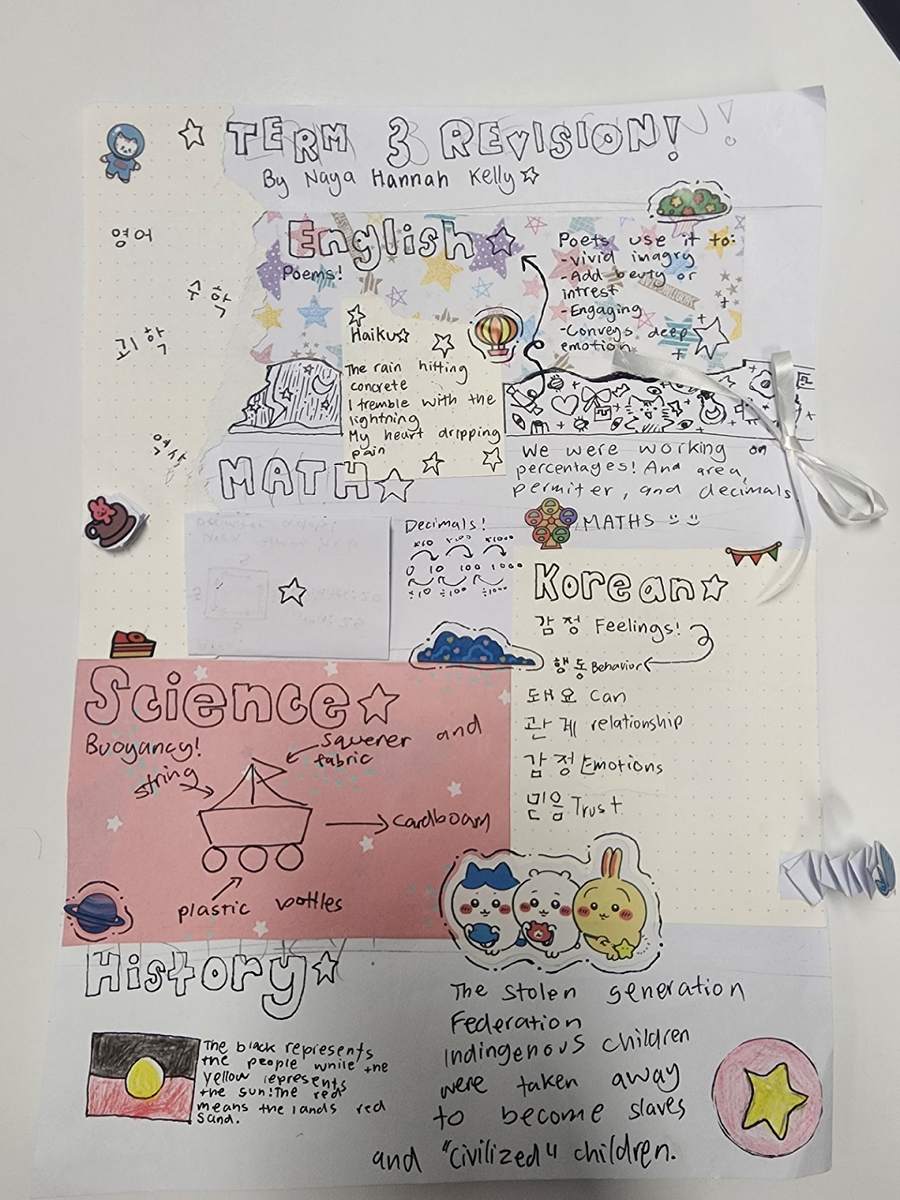 TERM 3 REVISION!
By Naya Hannah Kelly
영어
수학
괴학
역사
English
Poems!
Poets use it to:
-Vivid imagry
-Add beuty or
intrest
-Engaging
-Conveys deep
emotion
Haiku
The rain hitting
concrete
I tremble with the
lightning
My heart dripping
pain
MATH
We were working on
percentages! And area,
permiter, and decimals
MATHS
Decimals!
x10 x100 x1000
0 10 100 1000
÷10 ÷100 ÷1000
Korean
감정 Feelings!
행동 Behavior
돼요 Can
관계 relationship
감정 Emotions
믿음 Trust
Science
Buoyancy!
string
and
fabric
cardboard
plastic bottles
History
The black represents
the people while the
yellow represents
the sun! The red
means the lands red
sand.
The stolen generation
Federation
Indingenous children
were taken away
to become slaves
and "civilized" children.